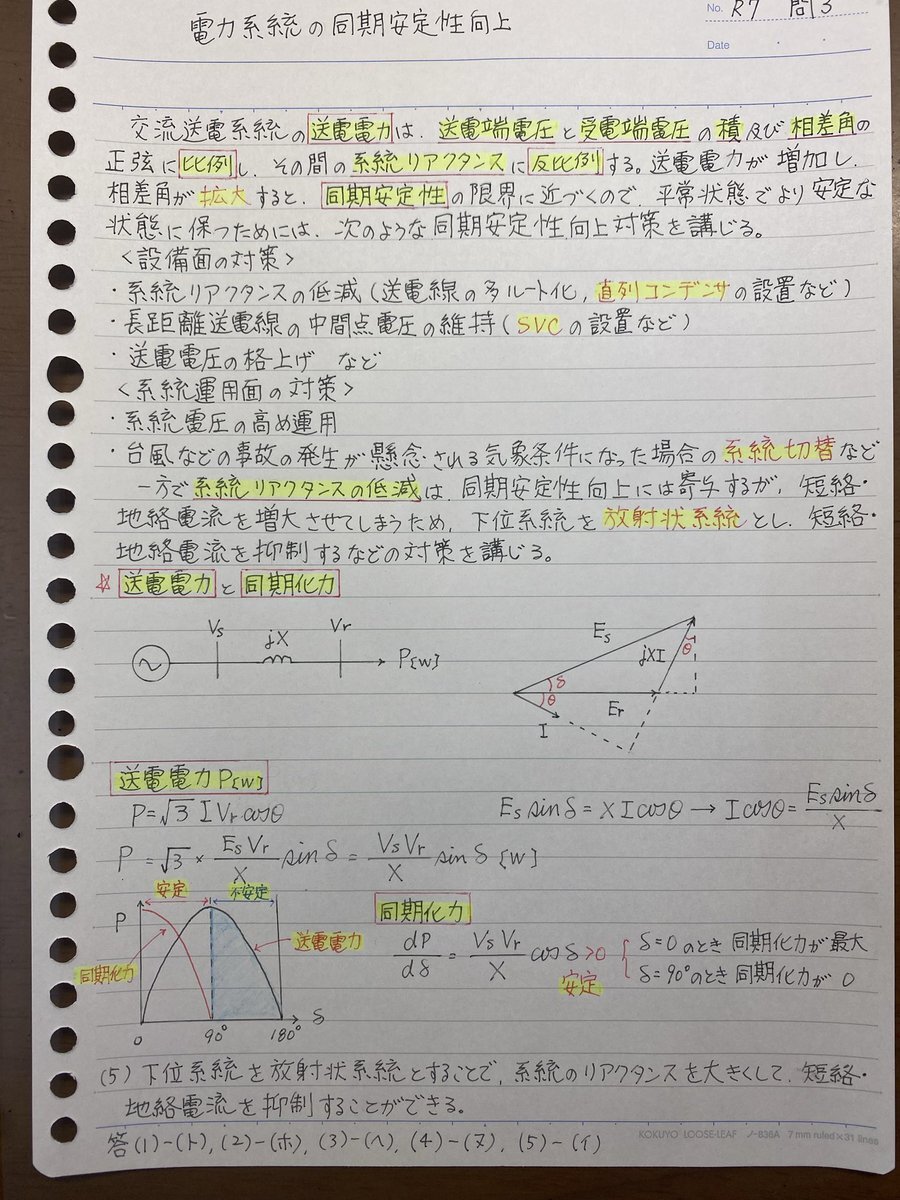 電力系統の同期安定性向上
No. R7 問3
Date
交流送電系統の送電電力は、送電端電圧と受電端電圧の積及び相差角の
正弦に比例し、その間の系統リアクタンスに反比例する。送電電力が増加し、
相差角が拡大すると、同期安定性の限界に近づくので、平常状態でより安定な
状態に保つためには、次のような同期安定性向上対策を講じる。
<設備面の対策>
・系統リアクタンスの低減(送電線の多ルート化、直列コンデンサの設置など)
・長距離送電線の中間点電圧の維持(SVCの設置など)
・送電電圧の格上げ など
<系統運用面の対策>
・系統電圧の高め運用
・台風などの事故の発生が懸念される気象条件になった場合の系統切替など
一方で系統リアクタンスの低減は、同期安定性向上には寄与するが、短絡・
地絡電流を増大させてしまうため、下位系統を放射状系統とし、短絡・
地絡電流を抑制するなどの対策を講じる。
☆ 送電電力と同期化力
Vs jX Vr P[W]
Es jXI θ δ θ Er I
送電電力P[W]
P=√3 I Vr cosθ
Es sinδ = X I cosθ → I cosθ = Es sinδ / X
P = √3 × Es Vr / X sinδ = Vs Vr / X sinδ [W]
安定 不安定
P 送電電力 同期化力
0 90° 180° δ
同期化力
dP/dδ = Vs Vr / X cosδ >0 安定
δ=0のとき 同期化力が最大
δ=90°のとき 同期化力が0
(5) 下位系統を放射状系統とすることで、系統のリアクタンスを大きくして、短絡・
地絡電流を抑制することができる。
答(1)-(ト), (2)-(ホ), (3)-(ヘ), (4)-(ヌ), (5)-(イ)
KOKUYO LOOSE-LEAF ノ-836A 7 mm ruled×31 lines